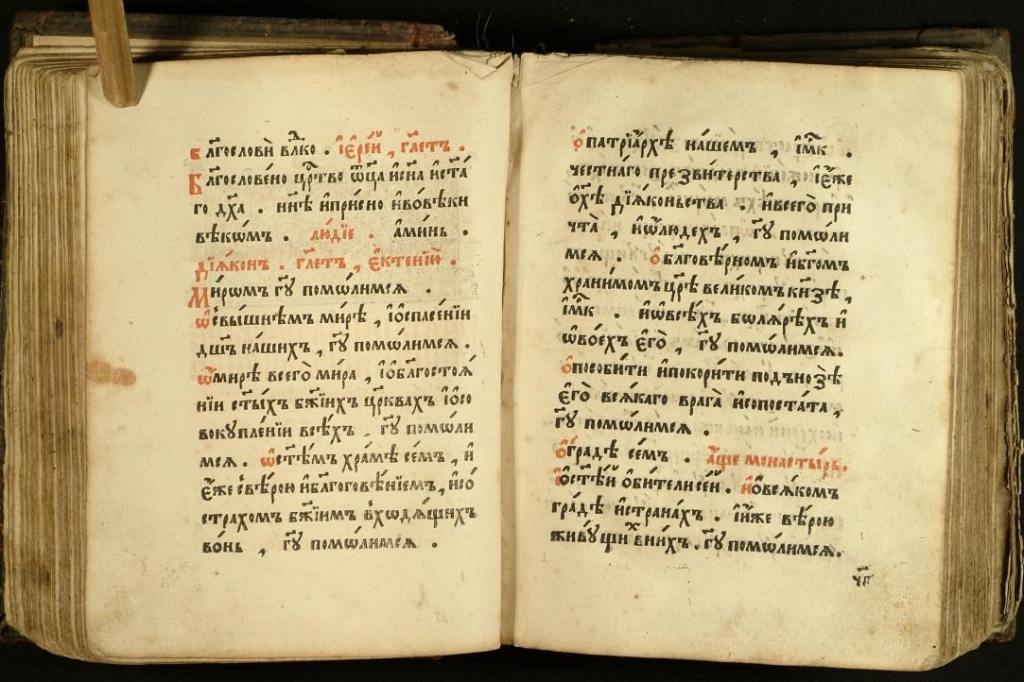 Бл҃гословѝ вл҃ко . і҆ере́й , гл҃етъ .
Бл҃гослове́но цр҃тво ѿц҃а и҆сн҃а и҆ст҃а́
го дх҃а . нн҃ѣ и҆при́сно и҆во́вѣки
вѣкѡ́мъ . лю́дїе . а҆ми́нь .
дїа́конъ . гл҃етъ , е҆ктенїю̀ .
Ми́рѡмъ гд҃у помо́лимсѧ .
ѡ҆свы́шнѣмъ ми́рѣ , і҆ѡспасе́нїи
дш҃ъ на́шихъ , гд҃у помо́лимсѧ .
ѡ҆ми́рѣ всего̀ ми́ра , і҆ѡбл҃госто́ѧ
нїи ст҃ы́хъ бж҃їихъ цр҃квахъ і҆ѡсо
вокупле́нїи всѣ́хъ . гд҃у помо́ли
мсѧ . ѡ҆ст҃ѣ́мъ хра́мѣ се́мъ , и҆
е҆́же свѣ́рою и҆бл҃гоговѣ́нїемъ , и҆со́
страхомъ бж҃їимъ вхо́дѧщихъ
во́нь , гд҃у помо́лимсѧ .
о҆патрїа́рхѣ на́шемъ , і҆м҃к .
честна́го презви́терства , і҆е҆́же
ѡ҆хр҃ѣ̀ дїа́коньства . и҆всего̀ при
чта̀ , и҆ѡ҆лю́дехъ , гд҃у помо́ли
мсѧ . о҆бл҃гове́рномъ и҆бг҃омъ
храни́момъ цр҃ѣ̀ вели́комъ кн҃зѣ ,
і҆м҃к . и҆ѡ҆всѣ́хъ болѧ́рѣхъ и҆
ѡ҆во́ехъ е҆гѡ̀ , гд҃у помо́лимсѧ .
о҆пособи́ти и҆покори́ти по́дъ но́зѣ
е҆гѡ̀ всѧ́каго врага̀ и҆сопоста́та ,
гд҃у помо́лимсѧ .
о҆гра́дѣ се́мъ . а҆́ще монасты́рь .
о҆ст҃ѣ́й о҆би́тели се́й . и҆ѡ҆всѧ́комъ
гра́дѣ и҆страна́хъ . і҆и҆́же вѣ́рою
живу́щихъ вни́хъ . гд҃у помо́лимсѧ .